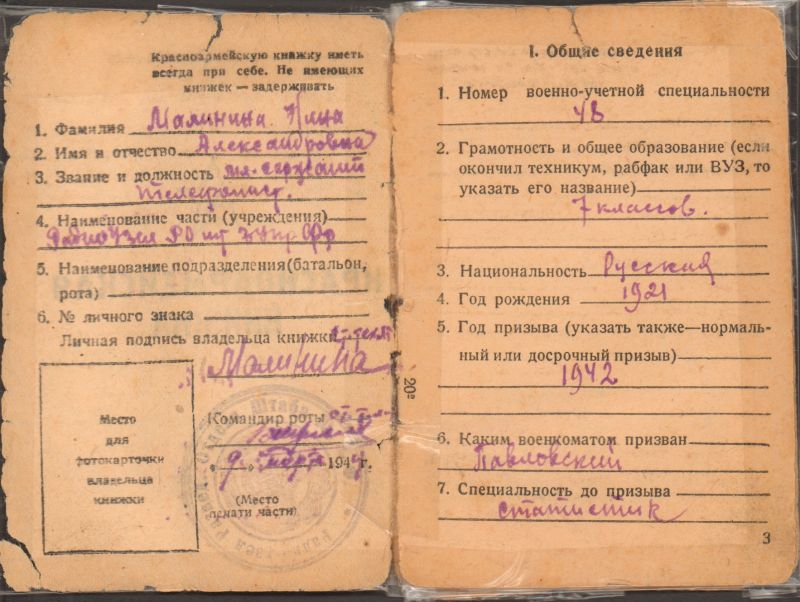 Красноармейскую книжку иметь
всегда при себе. Не имеющих
книжек — задерживать
1. Фамилия Малинина Нина
2. Имя и отчество Александровна
3. Звание и должность мл. сержант
телефонист.
4. Наименование части (учреждения)
Радиоузел РО шт
5. Наименование подразделения (батальон,
рота)
6. № личного знака
Личная подпись владельца книжки
Малинина
Место
для
фотокарточки
владельца
книжки
Командир роты
9 марта 1944 г.
(Место
печати части)
20*
I. Общие сведения
1. Номер военно-учетной специальности
48
2. Грамотность и общее образование (если
окончил техникум, рабфак или ВУЗ, то
указать его название)
7 классов.
3. Национальность Русская
4. Год рождения 1921
5. Год призыва (указать также—нормаль-
ный или досрочный призыв)
1942
6. Каким военкоматом призван
Павловский
7. Специальность до призыва
статистик
3